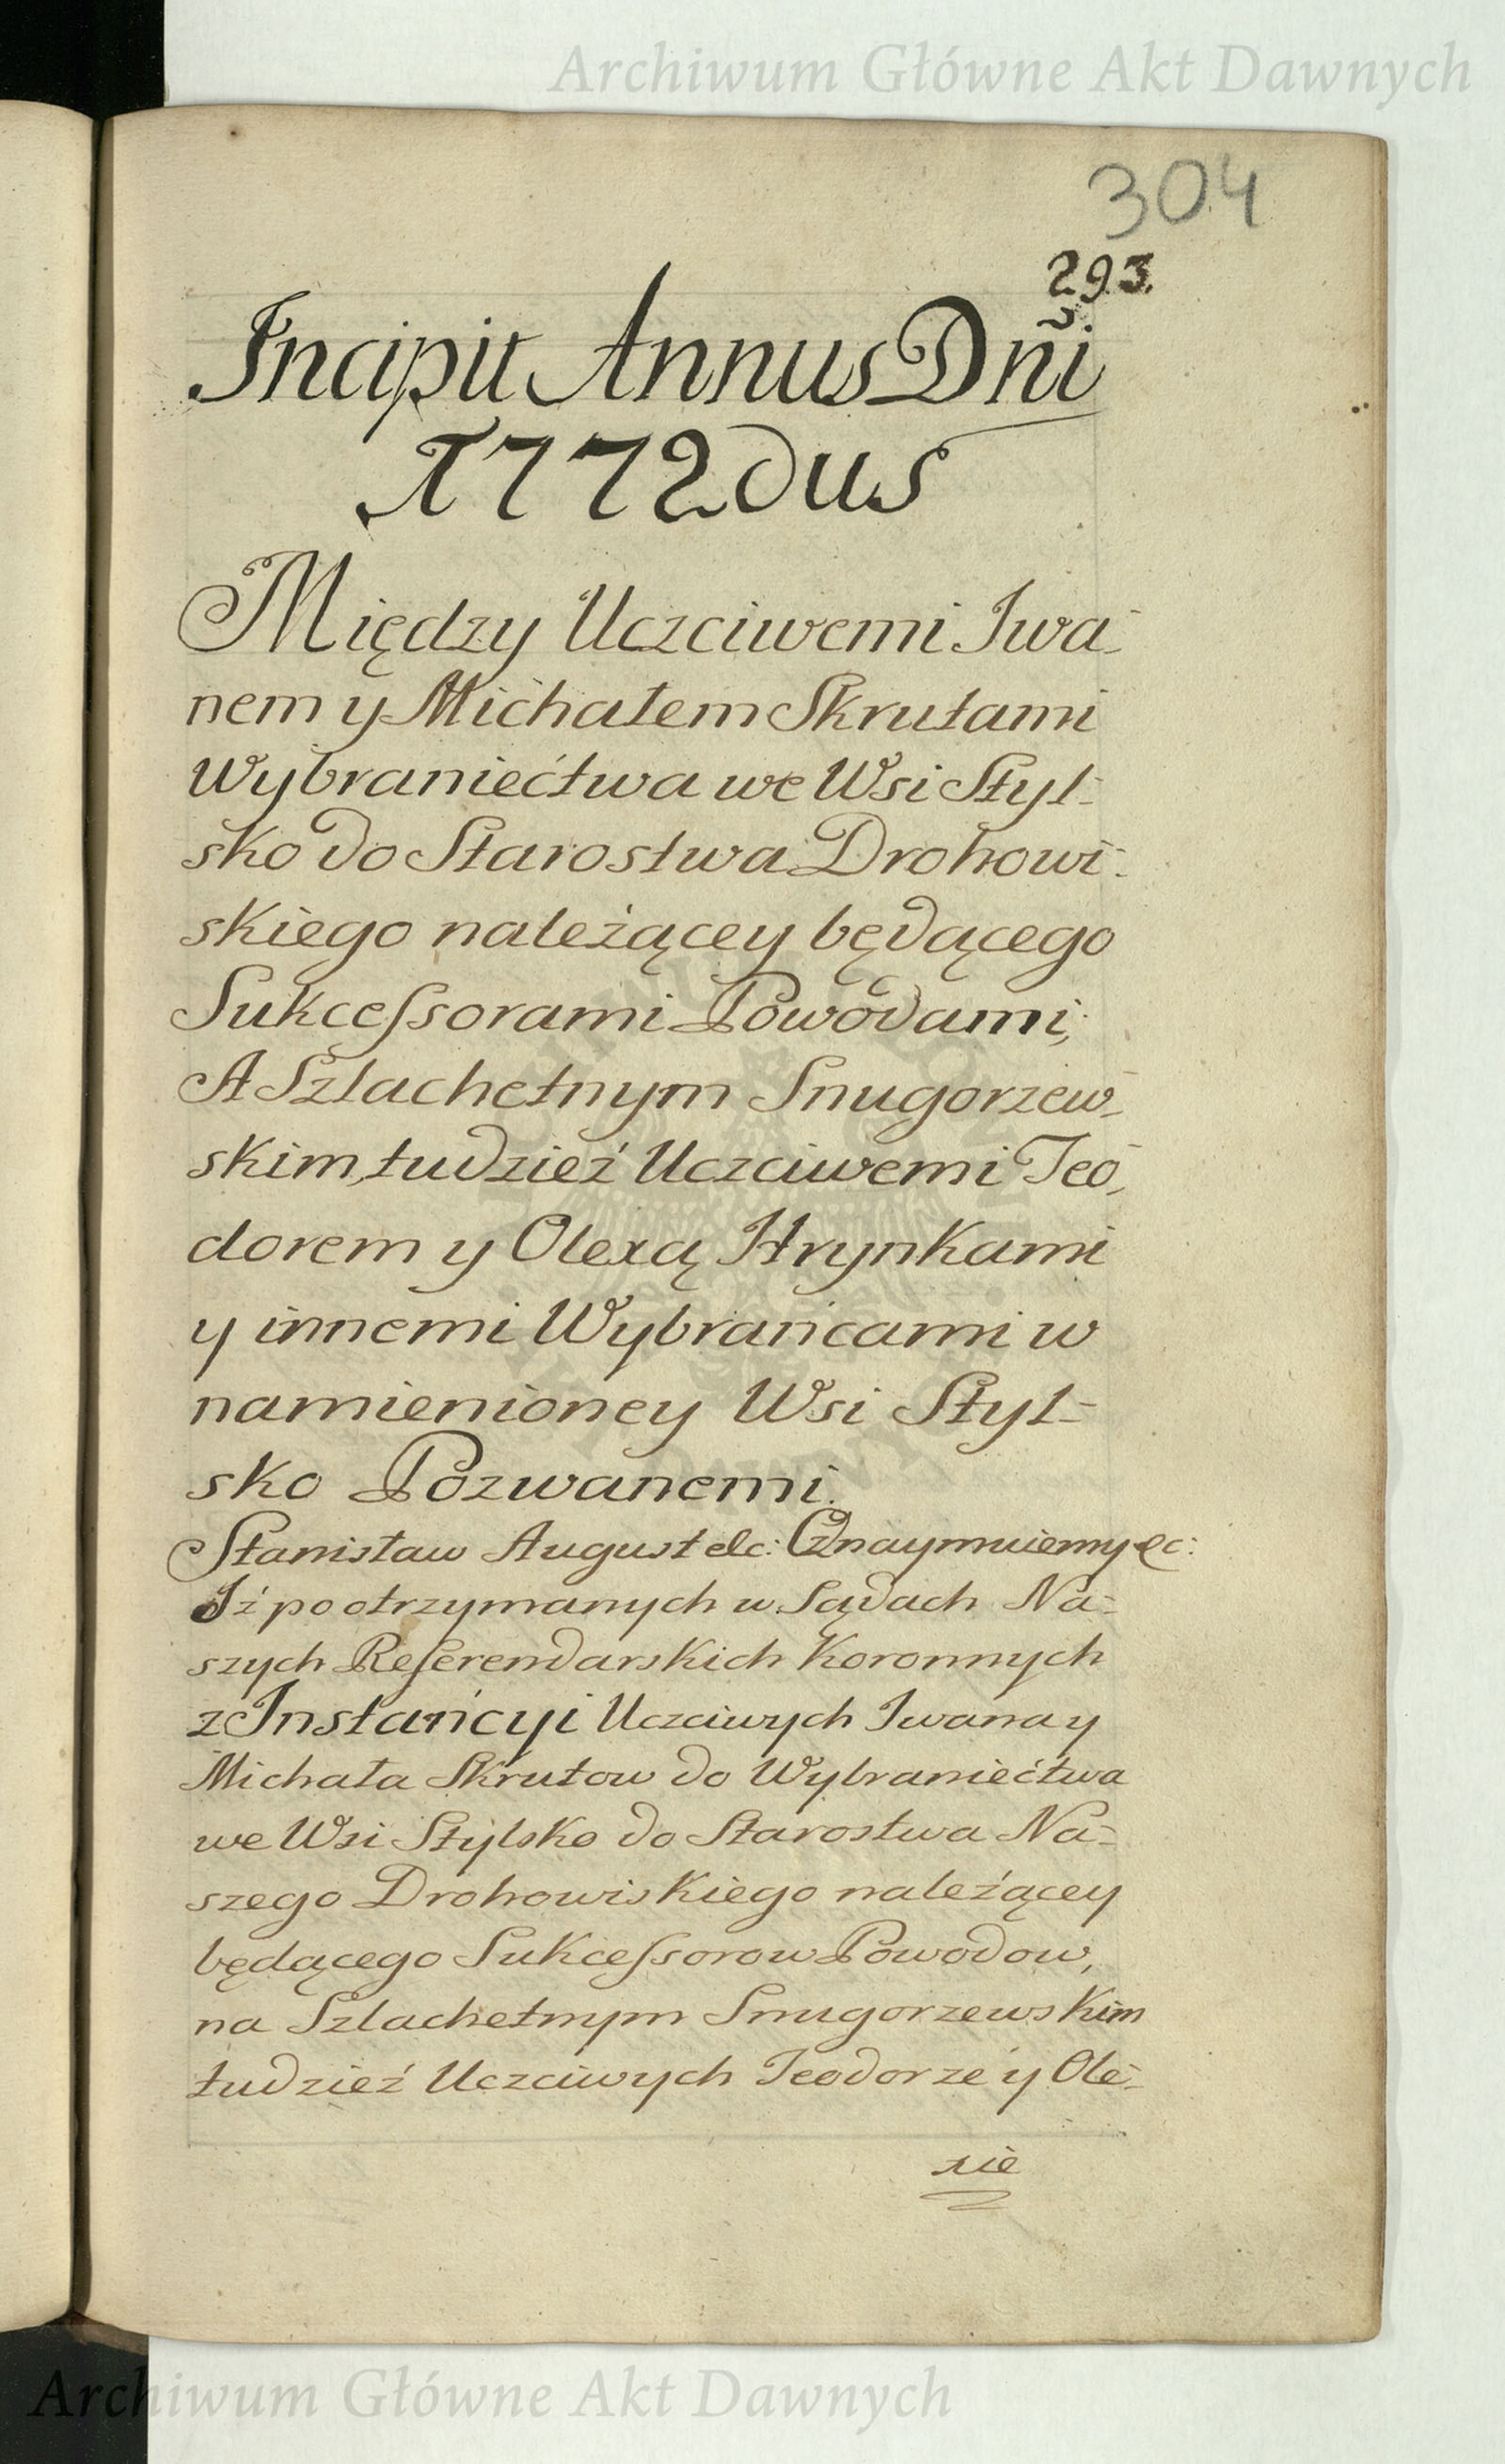 Archiwum Główne Akt Dawnych
304
293.
Incipit Annus Dn̄i
1772dus
Między Uczciwemi Iwa-
nem y Michałem Skrutami
Wybraniećtwa we Wsi Styl-
sko do Starostwa Drohowi-
skiego należącey będącego
Sukcessorami Powodami,
A Szlachetnym Snugorzew-
skim, tudzież Uczciwemi Teo-
dorem y Olexą Hrynkami
y innemi Wybrańcami w
namienioney Wsi Styl-
sko Pozwanemi.
Stanisław August etc: Oznaymuiemy etc:
Iż po otrzymanych w Sądach Na-
szych Referendarskich Koronnych
z Instańcyi Uczciwych Iwana y
Michała Skrutow do Wybraniećtwa
we Wsi Stylsko do Starostwa Na-
szego Drohowiskiego należącey
będącego Sukcessorow Powodow,
na Szlachetnym Snugorzewskim
tudzież Uczciwych Teodorze y Ole-
xie
Archiwum Główne Akt Dawnych